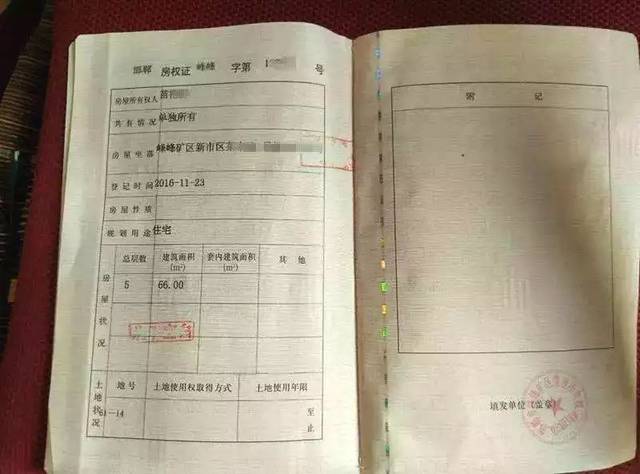 邯郸 房权证 峰峰 字第 1 号
房屋所有权人 苗
共有情况 单独所有
房屋坐落 峰峰矿区新市区东
登记时间 2016-11-23
房屋性质
规划用途 住宅
房屋状况
总层数 建筑面积(m²) 套内建筑面积(m²) 其他
5 66.00
土地状况
地号 土地使用权取得方式 土地使用年限
01—14 至
止
附 记
填发单位(盖章)